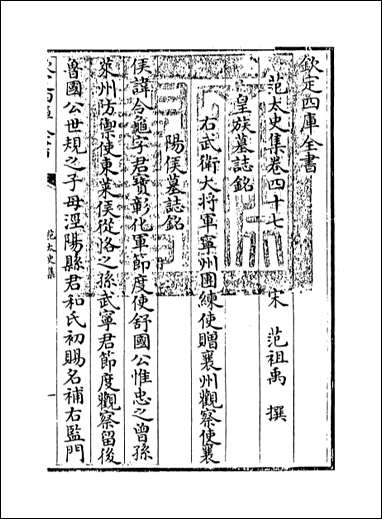 欽定四庫全書
范太史集卷四十七
宋 范祖禹 撰
皇族墓誌銘
右武衛大將軍寧州團練使贈襄州觀察使襄
陽侯墓誌銘
侯諱令龜字君寶彰化軍節度使舒國公惟忠之曾孫
萊州防禦使東萊侯從恪之孫武寧君節度觀察留後
魯國公世規之子母涇陽縣君和氏初賜名補右監門
范太史集
一